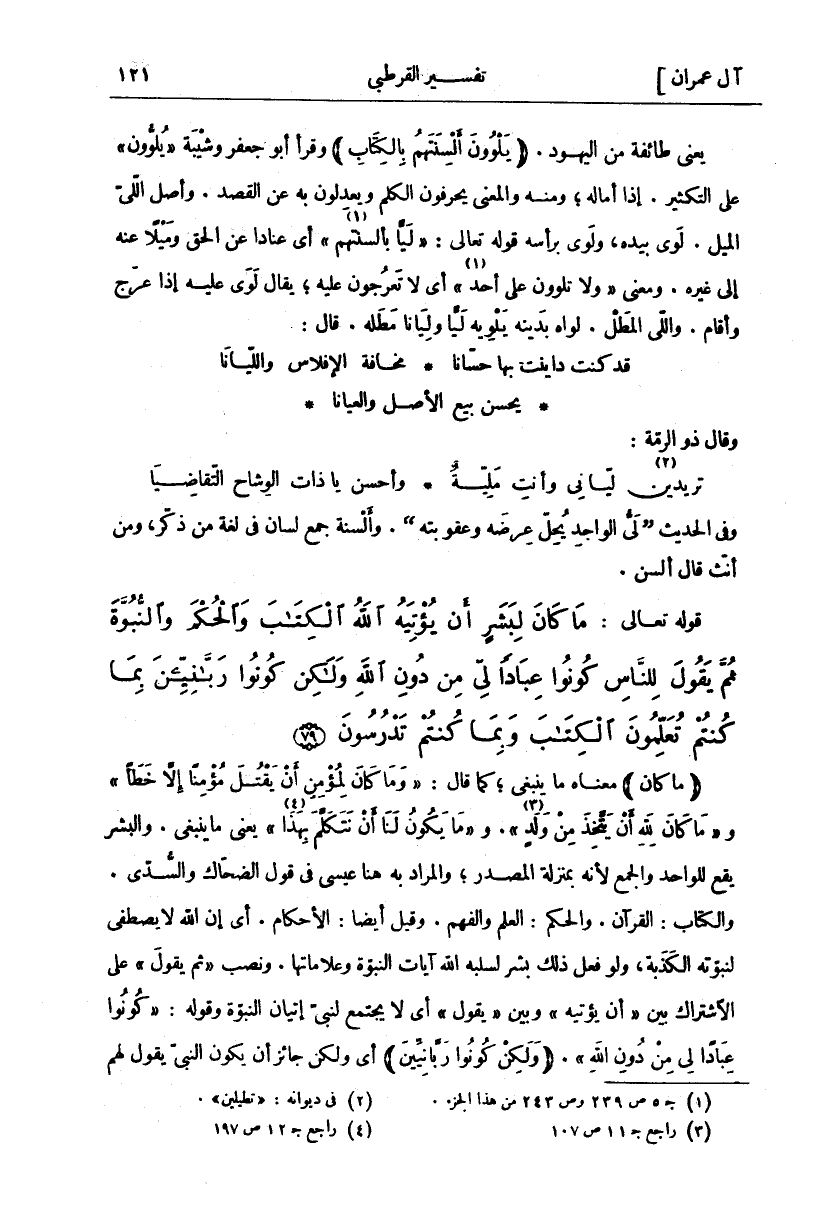 آل عمران ] تفسير القرطبي ١٢١
يعنى طائفة من اليهود . ( يَلْوُونَ أَلْسِنَتَهُمْ بِالْكِتَابِ ) وقرأ أبو جعفر وشَيْبَة « يُلَوُّون »
على التكثير . إذا أماله ؛ ومنه والمعنى يحرفون الكلم ويعدلون به عن القصد . وأصل اللّىّ
الميل . لَوَى بيده، ولَوَى برأسه قوله تعالى : « لَيًّا بألسنتهم » (١) أى عنادا عن الحق ومَيْلًا عنه
إلى غيره . ومعنى « ولا تلوون على أحد » (١) أى لا تَعرُجون عليه ؛ يقال لَوَى عليه إذا عرّج
وأقام . واللّى المَطْل . لواه بدَينه يَلْوِيه لَيًّا ولِيَانا مَطَله . قال :
قد كنت داينت بها حسّانا * مخافة الإفلاس واللّيَانَا
* يحسن بيع الأصل والعيانا *
وقال ذو الرمّة :
تريدين (٢) ليّانى وأنتِ مَلِيّةٌ * وأحسن يا ذات الوِشاح التّقاضِيَا
وفى الحديث ”لَىُّ الواجدِ يُحِلّ عِرضَه وعقوبته“ . وأَلْسنة جمع لسان فى لغة من ذكّر، ومن
أنّث قال ألسن .
قوله تعالى : مَا كَانَ لِبَشَرٍ أَن يُؤْتِيَهُ ٱللَّهُ ٱلْكِتَـٰبَ وَٱلْحُكْمَ وَٱلنُّبُوَّةَ
ثُمَّ يَقُولَ لِلنَّاسِ كُونُوا عِبَادًا لِّى مِن دُونِ ٱللَّهِ وَلَـٰكِن كُونُوا رَبَّـٰنِيِّـۧنَ بِمَا
كُنتُمْ تُعَلِّمُونَ ٱلْكِتَـٰبَ وَبِمَا كُنتُمْ تَدْرُسُونَ ٧٩
( ما كان ) معناه ما ينبغى ؛ كما قال : « وَمَا كَانَ لِمُؤْمِنٍ أَنْ يَقْتُلَ مُؤْمِنًا إِلَّا خَطَأً »
و « مَا كَانَ لِلهِ أَنْ يَتَّخِذَ مِنْ وَلَدٍ » (٣) . و « مَا يَكُونُ لَنَا أَنْ نَتَكَلَّمَ بِهَذَا » (٤) يعنى ما ينبغى . والبشر
يقع للواحد والجمع لأنه بمنزلة المصدر ؛ والمراد به هنا عيسى فى قول الضحّاك والسُّدّى .
والكتاب : القرآن . والحكم : العلم والفهم . وقيل أيضا : الأحكام . أى إن الله لا يصطفى
لنبوّته الكَذَبة ، ولو فعل ذلك بشر لسلبه الله آيات النبوّة وعلاماتها . ونصب « ثم يقولَ » على
الاشتراك بين « أن يؤتيه » وبين « يقول » أى لا يجتمع لنبىّ إتيان النبوّة وقوله : « كُونُوا
عِبَادًا لِى مِنْ دُونِ اللهِ » . ( وَلَكِنْ كُونُوا رَبَّانِيِّينَ ) أى ولكن جائز أن يكون النبىّ يقول لهم
(١) جـ ٥ ص ٢٣٩ وص ٢٤٣ من هذا الجزء . (٢) فى ديوانه : « تطيلين » .
(٣) راجع جـ ١١ ص ١٠٧ (٤) راجع جـ ١٢ ص ١٩٧